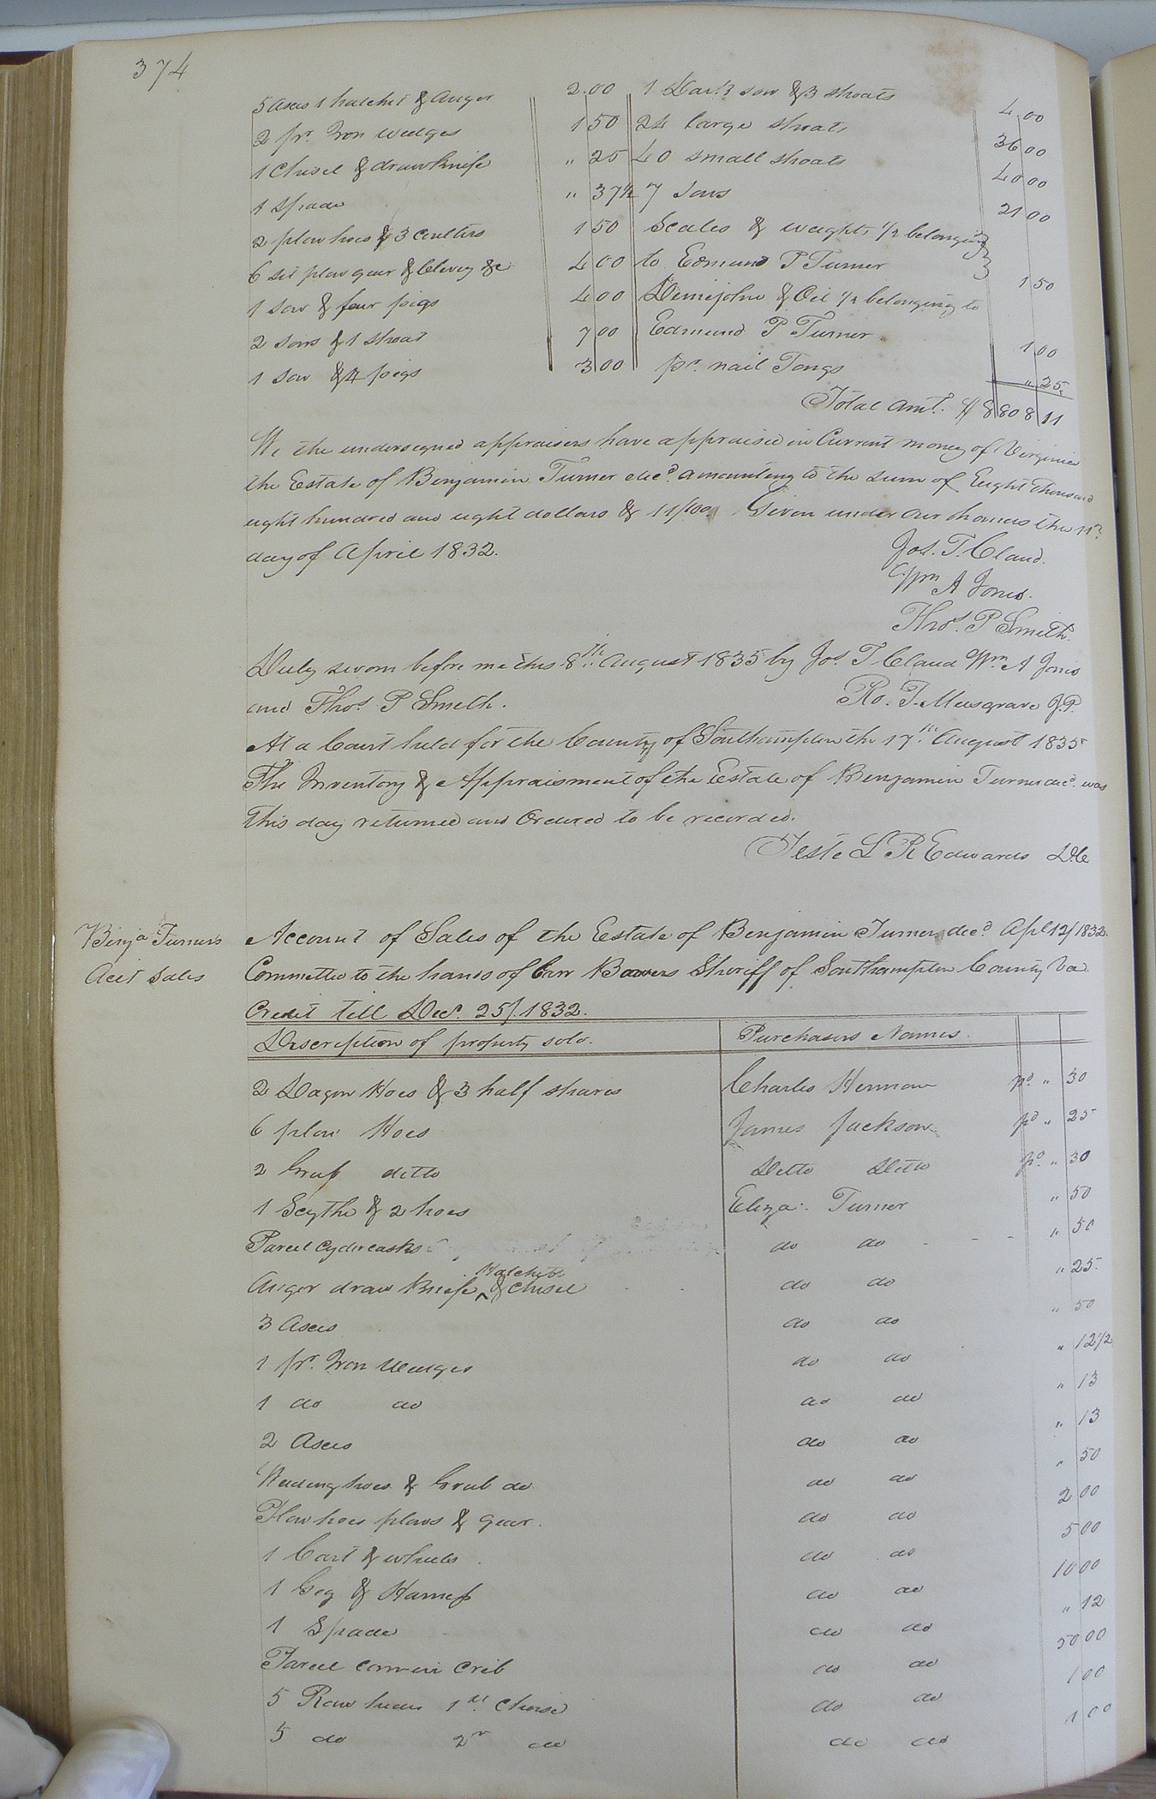 374
5 Axes 1 hatchet & Auger 2.00 1 Dark sow & 3 shoats 4 00
2 pr. Iron wedges 1 50 24 large shoats 36 00
1 Chisel & draw Knife " 25 40 small shoats 40 00
1 Spade " 37½ 7 Sows 21 00
2 plow hoes & 3 Coulters 1 50 Scales & weights ½ belonging
6 set plow gear & Clevy &c 4 00 to Edmund P Turner 1 50
1 sow & four pigs 4 00 Demijohn & Oil ½ belonging to
2 Sows & 1 Shoat 7 00 Edmund P Turner 1 00
1 Sow & 4 pigs 3 00 pr. nail Tongs " 25
Total amt. $ 8808 11
We the undersigned appraisers have appraised in Current money of Virginia
the Estate of Benjamin Turner decd. amounting to the sum of Eight thousand
eight hundred and eight dollars & 11/100. Given under our hands the 11th
day of April 1832.
Jos. T. Claud.
Wm A Jones.
Thos. P Smith.
Duly sworn before me this 8th August 1835 by Jos T Claud Wm A Jones
and Thos P Smith.
Ro. T. Musgrave J.P.
At a Court held for the County of Southampton the 17th August 1835
The Inventory & Appraisment of the Estate of Benjamin Turner decd. was
this day returned and Ordered to be recorded.
Teste L R Edwards D.C
Benja Turner's
Acct Sales
Account of Sales of the Estate of Benjamin Turner decd. Apl 12/1832
Committed to the hands of Carr Bowers Sheriff of Southampton County Va
Credit till Decr. 25/1832.
Description of property sold. Purchasers Names.
2 Dagon Hoes & 3 half shares Charles Herman pd. " 30
6 plow Hoes James Jackson pd " 25
2 Grub ditto Ditto Ditto pd. " 30
1 Scythe & 2 hoes Eliza: Turner " 50
Parcel Cyder casks do do - - - " 50
Hatchet
Auger draw Knife ^ & Chisel do do " 25
3 Axes do do " 50
1 pr. Iron Wedges do do " 12½
1 do do do do " 13
2 Axes do do " 13
Weeding hoes & Grub do do do " 50
Plow hoes plows & gear. do do 2 00
1 Cart & wheels do do 5 00
1 Gig & Harness do do 10 00
1 Spade do do " 12
Parcel corn in Crib do do 50 00
5 Raw hides 1st Choise do do 1 00
5 do 2nd do do do 1 00